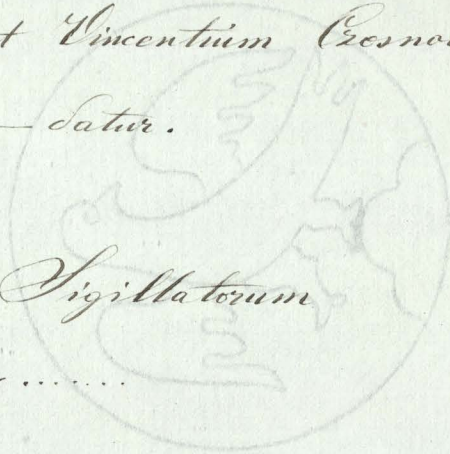 t Vincentium Czesno
— datur.
Sigillatorum
.......